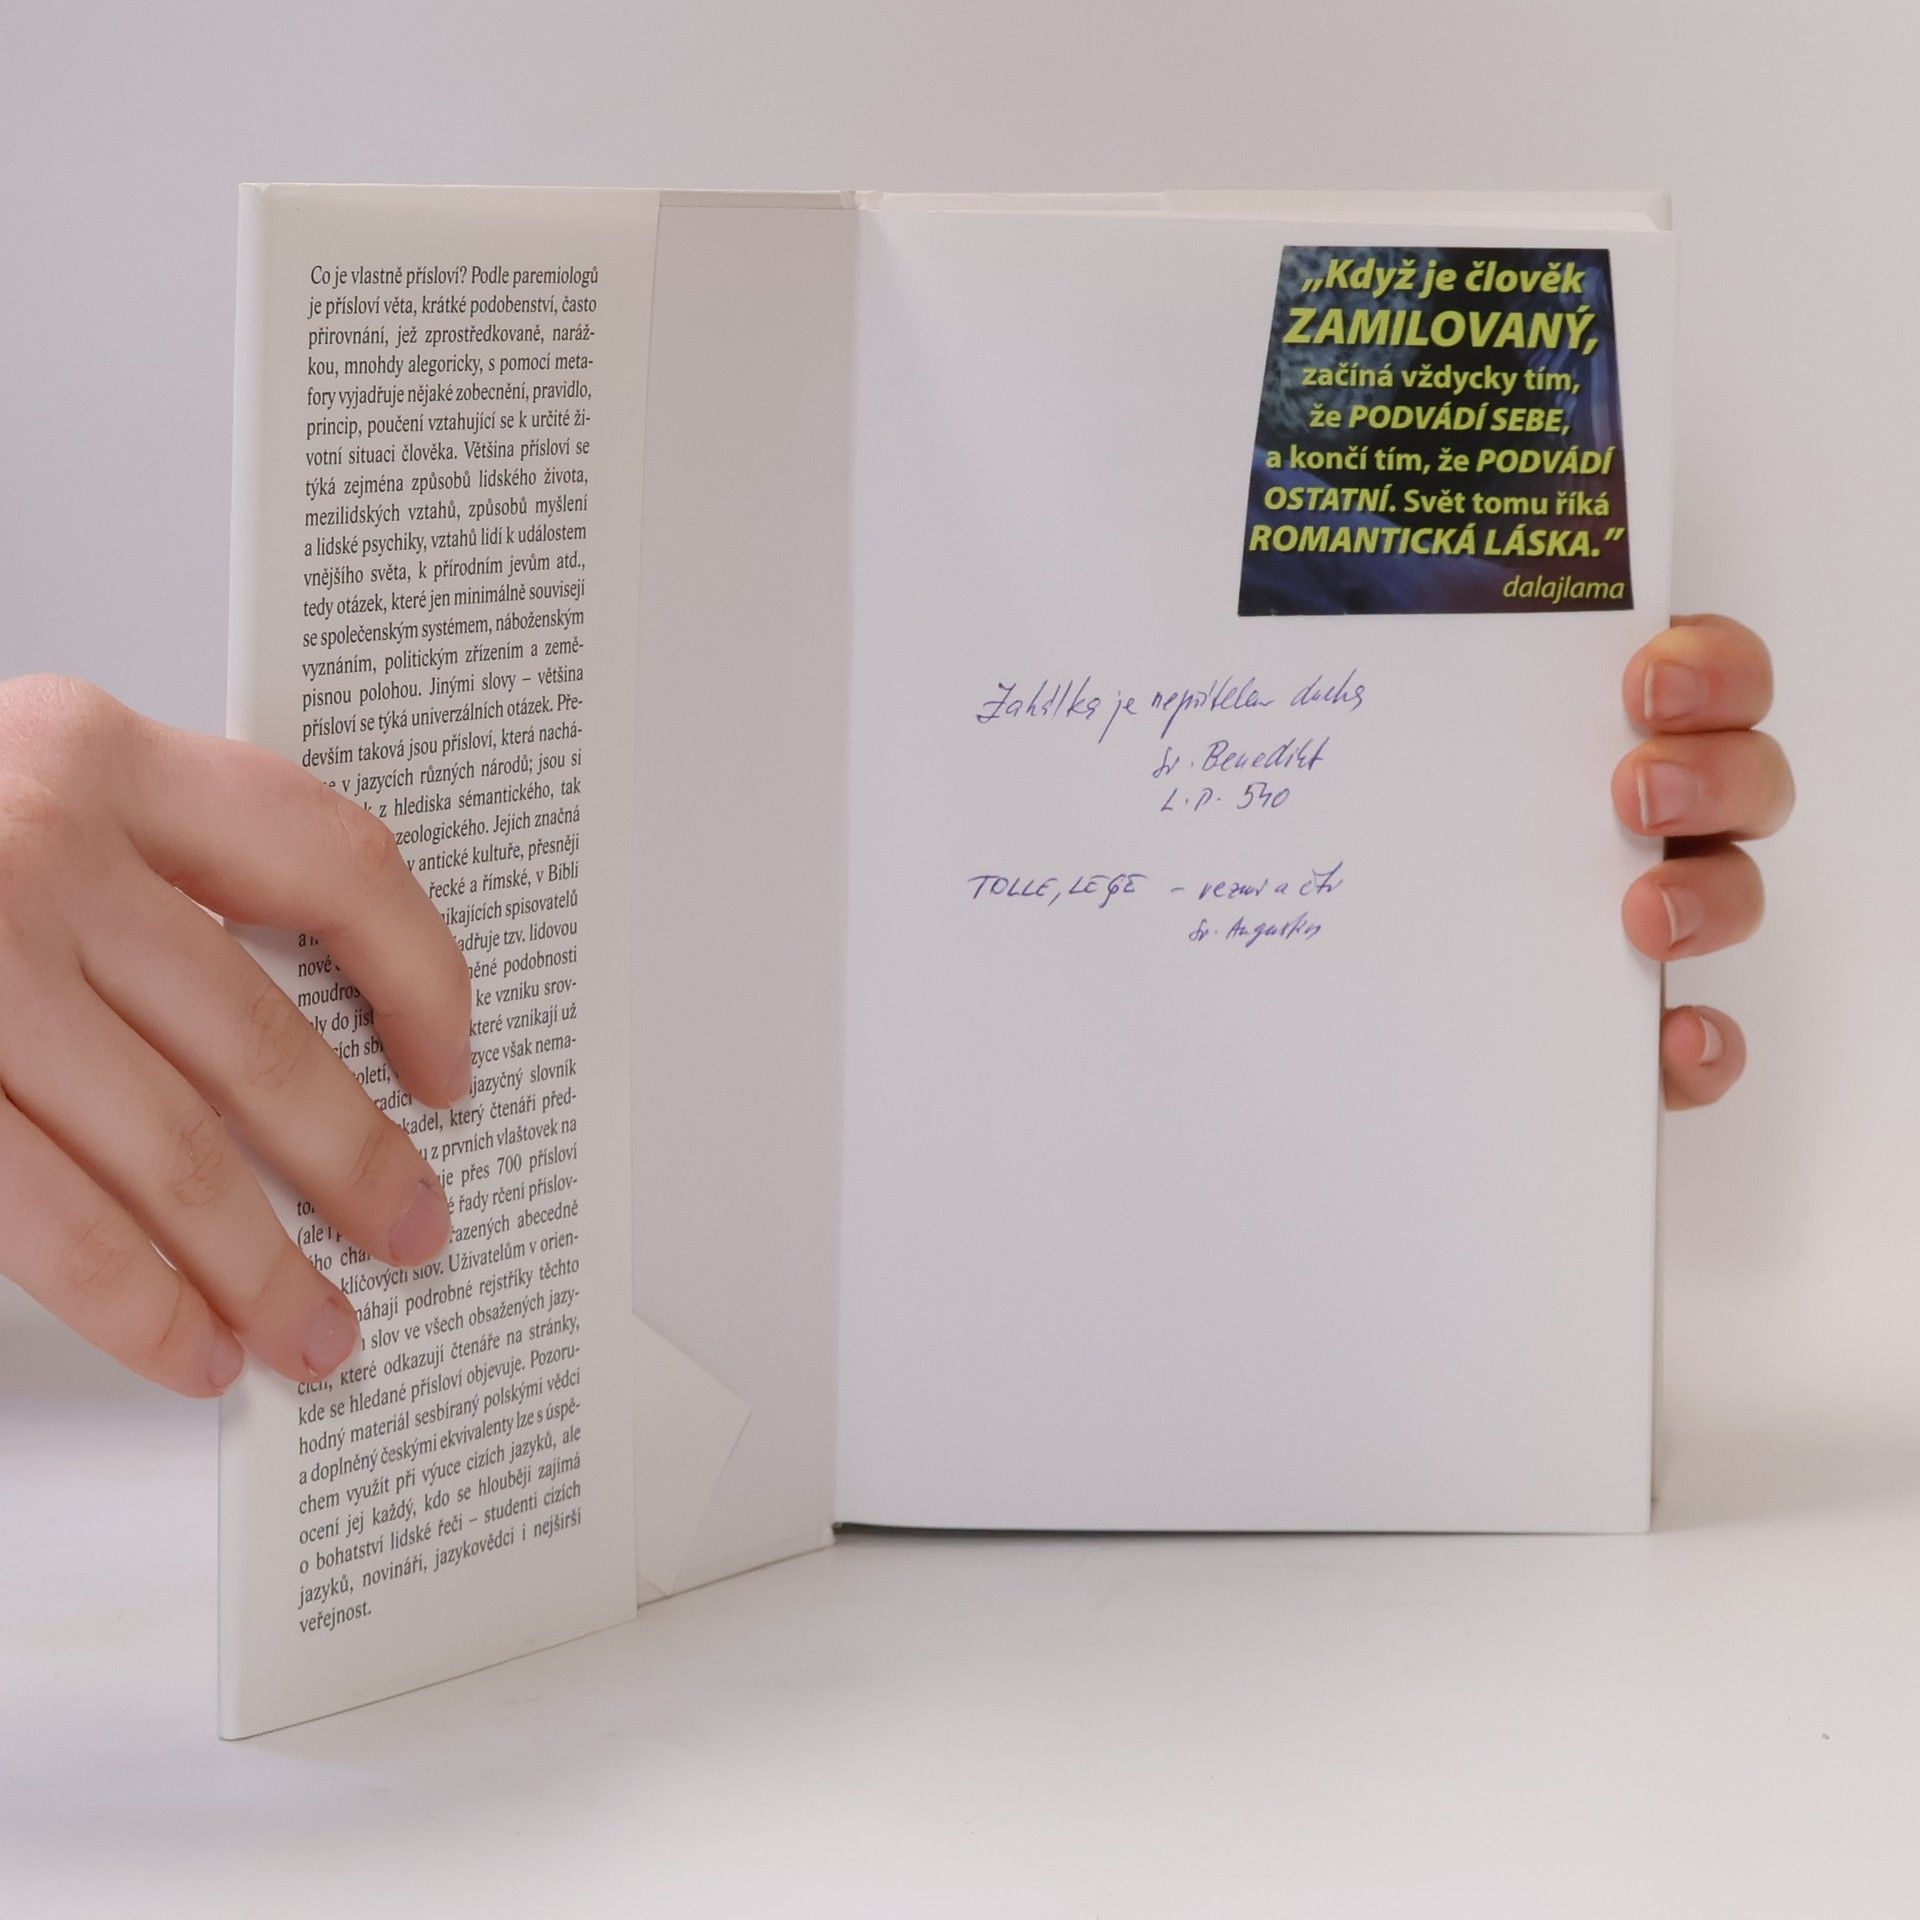 Co je vlastně přísloví? Podle paremiologů
je přísloví věta, krátké podobenství, často
přirovnání, jež zprostředkovaně, naráž-
kou, mnohdy alegoricky, s pomocí meta-
fory vyjadřuje nějaké zobecnění, pravidlo,
princip, poučení vztahující se k určité ži-
votní situaci člověka. Většina přísloví se
týká zejména způsobů lidského života,
mezilidských vztahů, způsobů myšlení
a lidské psychiky, vztahů lidí k událostem
vnějšího světa, k přírodním jevům atd.,
tedy otázek, které jen minimálně souvisejí
se společenským systémem, náboženským
vyznáním, politickým zřízením a země-
pisnou polohou. Jinými slovy – většina
přísloví se týká univerzálních otázek. Pře-
devším taková jsou přísloví, která nachá-
v jazycích různých národů; jsou si
z hlediska sémantického, tak
zeologického. Jejich značná
v antické kultuře, přesněji
řecké a římské, v Bibli
nikajících spisovatelů
adřuje tzv. lidovou
nové něné podobnosti
moudros ke vzniku srov-
ly do jist které vznikají už
cích sb zyce však nema-
oletí, jazyčný slovník
radici kadel, který čtenáři před-
u z prvních vlaštovek na
je přes 700 přísloví
řady rčení příslov-
(ale i řazených abecedně
ho cha Uživatelům v orien-
klíčových slov.
máhají podrobné rejstříky těchto
slov ve všech obsažených jazy-
cích, které odkazují čtenáře na stránky,
kde se hledané přísloví objevuje. Pozoru-
hodný materiál sesbíraný polskými vědci
a doplněný českými ekvivalenty lze s úspě-
chem využít při výuce cizích jazyků, ale
ocení jej každý, kdo se hlouběji zajímá
o bohatství lidské řeči – studenti cizích
jazyků, novináři, jazykovědci i nejširší
veřejnost.
„Když je člověk
ZAMILOVANÝ,
začíná vždycky tím,
že PODVÁDÍ SEBE,
a končí tím, že PODVÁDÍ
OSTATNÍ. Svět tomu říká
ROMANTICKÁ LÁSKA.”
dalajlama
Zahálka je nepřítelem ducha
sv. Benedikt
L.P. 540
TOLLE, LEGE – vezmi a čti
sv. Augustin